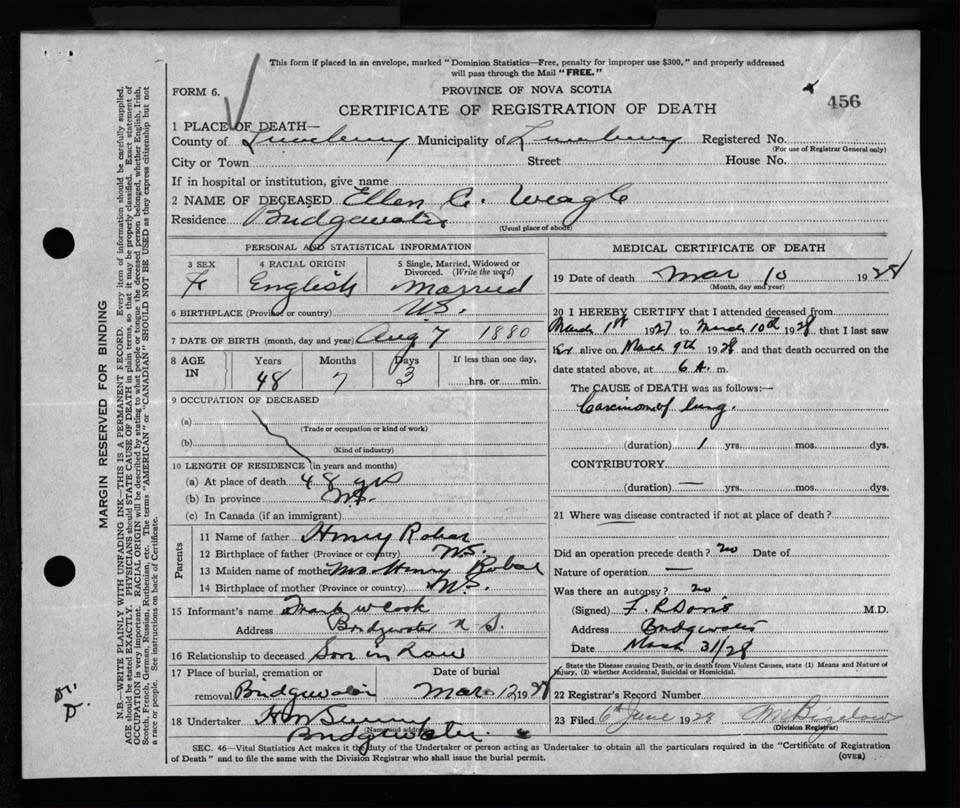 This form if placed in an envelope, marked "Dominion Statistics—Free, penalty for improper use $300," and properly addressed
will pass through the Mail "FREE."
FORM 6.
PROVINCE OF NOVA SCOTIA
456
CERTIFICATE OF REGISTRATION OF DEATH
1 PLACE OF DEATH—
County of Lunenburg Municipality of Lunenburg Registered No.
(For use of Registrar General only)
City or Town Street House No.
If in hospital or institution, give name
2 NAME OF DECEASED Ellen C. Weagle
Residence Bridgewater
(Usual place of abode)
PERSONAL AND STATISTICAL INFORMATION
3 SEX 4 RACIAL ORIGIN 5 Single, Married, Widowed or
Divorced. (Write the word)
F English Married
6 BIRTHPLACE (Province or country) N.S.
7 DATE OF BIRTH (month, day and year) Aug 7 1880
8 AGE IN Years Months Days If less than one day,
48 7 3 hrs. or min.
9 OCCUPATION OF DECEASED
(a)
(Trade or occupation or kind of work)
(b)
(Kind of industry)
10 LENGTH OF RESIDENCE (in years and months)
(a) At place of death 48 yrs
(b) In province N.S.
(c) In Canada (if an immigrant)
Parents
11 Name of father Henry Robar
12 Birthplace of father (Province or country) N.S.
13 Maiden name of mother Mrs Henry Robar
14 Birthplace of mother (Province or country) N.S.
15 Informant's name Frank W Cook
Address Bridgewater N S.
16 Relationship to deceased Son in Law
17 Place of burial, cremation or Date of burial
removal Bridgewater Mar 12 1928
18 Undertaker
(Name and address)
Bridgewater
MEDICAL CERTIFICATE OF DEATH
19 Date of death Mar 10 1928
(Month, day and year)
20 I HEREBY CERTIFY that I attended deceased from
March 1st 1927 to March 10th 1928 that I last saw
her alive on March 9th 1928 and that death occurred on the
date stated above, at 6 A. m.
The CAUSE of DEATH was as follows:—
Carcinoma of lung.
(duration) 1 yrs. mos. dys.
CONTRIBUTORY
(duration) — yrs. mos. dys.
21 Where was disease contracted if not at place of death?
Did an operation precede death? no Date of
Nature of operation —
Was there an autopsy? no
(Signed) F. R. Davis M.D.
Address Bridgewater
Date March 31/28
State the Disease causing Death, or in death from Violent Causes, state (1) Means and Nature of
Injury, (2) whether Accidental, Suicidal or Homicidal.
22 Registrar's Record Number
23 Filed 6th June 1928 Bigelow
(Division Registrar)
SEC. 46—Vital Statistics Act makes it the duty of the Undertaker or person acting as Undertaker to obtain all the particulars required in the "Certificate of Registration
of Death" and to file the same with the Division Registrar who shall issue the burial permit.
(OVER)
MARGIN RESERVED FOR BINDING
N.B.—WRITE PLAINLY WITH UNFADING INK—THIS IS A PERMANENT RECORD. Every item of information should be carefully supplied.
AGE should be stated EXACTLY. PHYSICIANS should STATE CAUSE OF DEATH in plain terms, so that it may be properly classified. Exact statement of
OCCUPATION is very important. RACIAL ORIGIN will be described by stating to what people or tongue the deceased person belonged, whether English, Irish,
Scotch, French, German, Russian, Ruthenian, etc. The terms "AMERICAN" or "CANADIAN" SHOULD NOT BE USED as they express citizenship but not
a race or people. See instructions on back of Certificate.